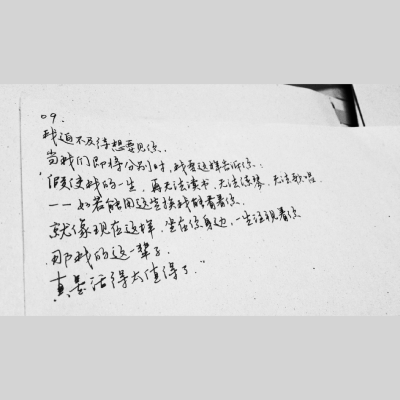 09.
我迫不及待想要见你.
当我们即将分别时,我要这样告诉你:
假使我的一生,再无法读书,无法练琴,无法歌唱.
——如若能用这些换我能看着你.
就像现在这样,坐在你身边,一生注视着你
那我的这一辈子.
真是活得太值得了."